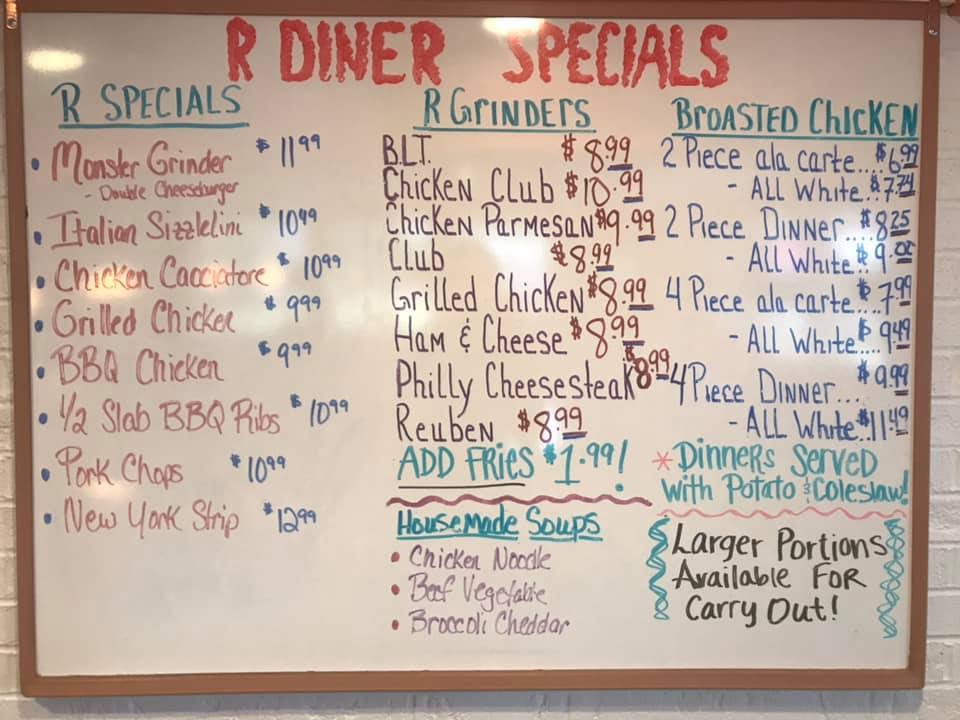 R DINER SPECIALS
R SPECIALS
• Monster Grinder $11.99
- Double Cheeseburger
• Italian Sizzlelini $10.49
• Chicken Cacciatore $10.99
• Grilled Chicken $9.99
• BBQ Chicken $9.99
• 1/2 Slab BBQ Ribs $10.99
• Pork Chops $10.99
• New York Strip $12.99
R GRINDERS
B.L.T. $8.99
Chicken Club $10.99
Chicken Parmesan $9.99
Club $8.99
Grilled Chicken $8.99
Ham & Cheese $8.99
Philly Cheesesteak $8.99
Reuben $8.99
ADD FRIES $1.99!
Housemade Soups
• Chicken Noodle
• Beef Vegetable
• Broccoli Cheddar
BROASTED CHICKEN
2 Piece ala carte... $6.99
- ALL White.. $7.74
2 Piece Dinner.... $8.25
- ALL White.. $9.00
4 Piece ala carte.. $7.99
- ALL White.... $9.49
4 Piece Dinner... $9.99
- ALL White.. $11.49
*Dinners Served
with Potato & Coleslaw!
Larger Portions
Available FOR
Carry Out!